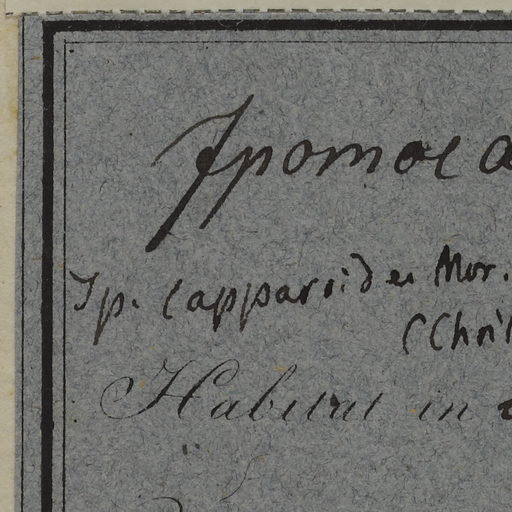 Ipomoea
Ip. Capparoides Mor.
(Choi
Habitat in